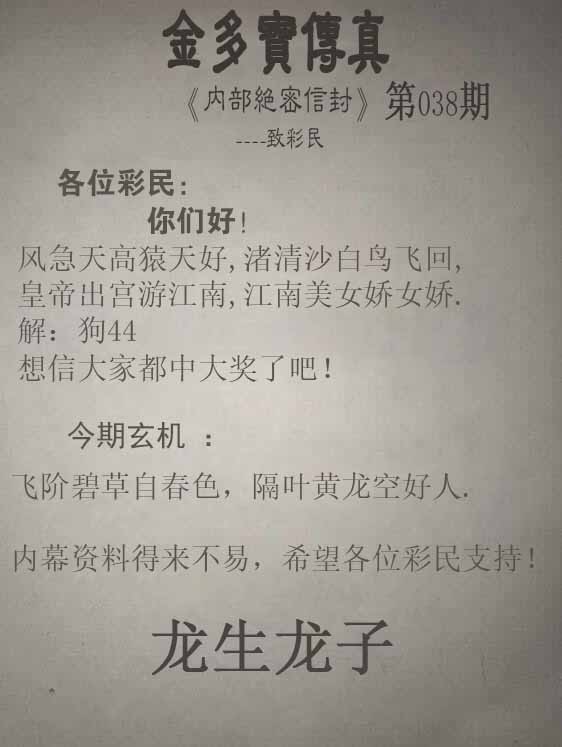 金多寶傳真
《内部絕密信封》第038期
----致彩民
各位彩民:
你们好!
风急天高猿天好,渚清沙白鸟飞回,
皇帝出宫游江南,江南美女娇女娇.
解：狗44
想信大家都中大奖了吧！
今期玄机 ：
飞阶碧草自春色，隔叶黄龙空好人.
内幕资料得来不易，希望各位彩民支持！
龙生龙子